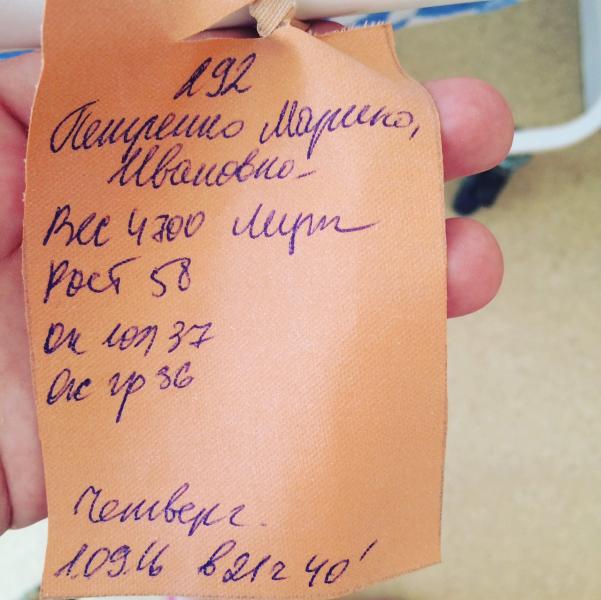 192
Петренко Марина,
Ивановна
Вес 4700 Муж
Рост 58
Ок гол 37
Ок гр 36
Четверг.
1.09.16 в 21ч 40'